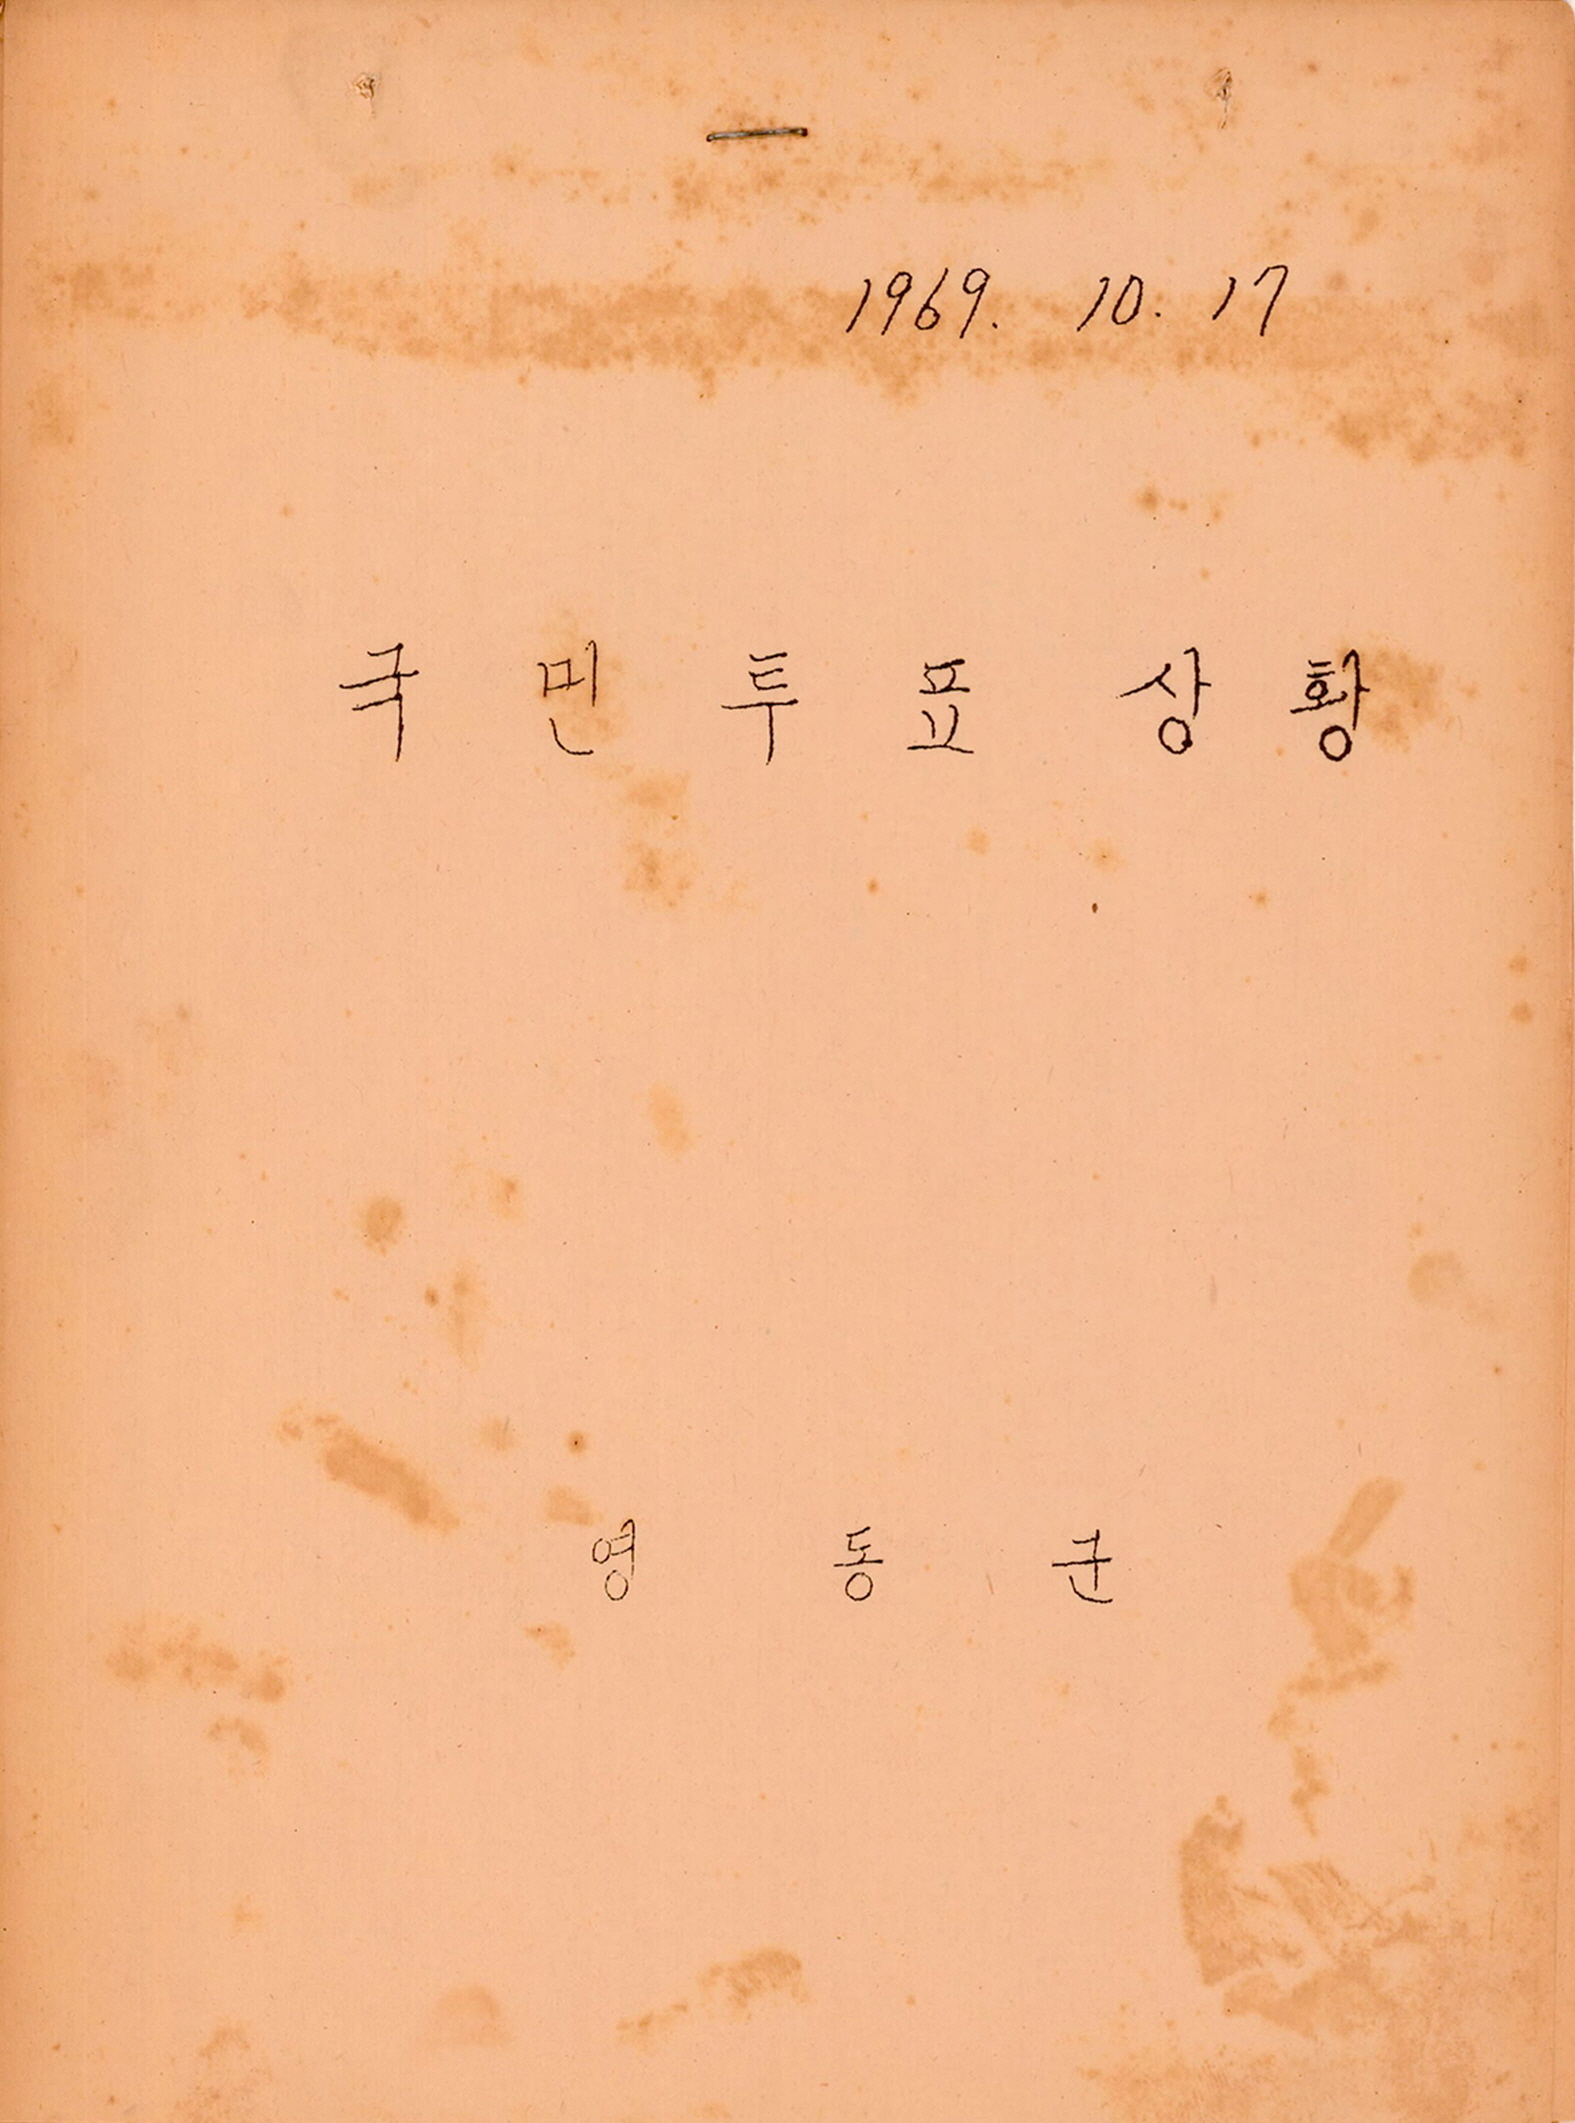 1969. 10. 17
국민투표상황
영동군